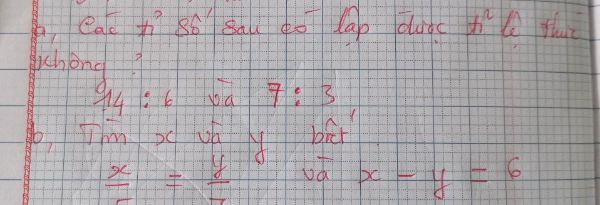 a, Các tỉ số sau có lập được tỉ lệ thức
không?
14 : 6 và 7 : 3
b, Tìm x và y biết
x/ = y/ và x - y = 6